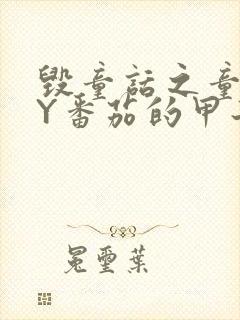 毁童话之童
Y番茄的甲
冕璽葉